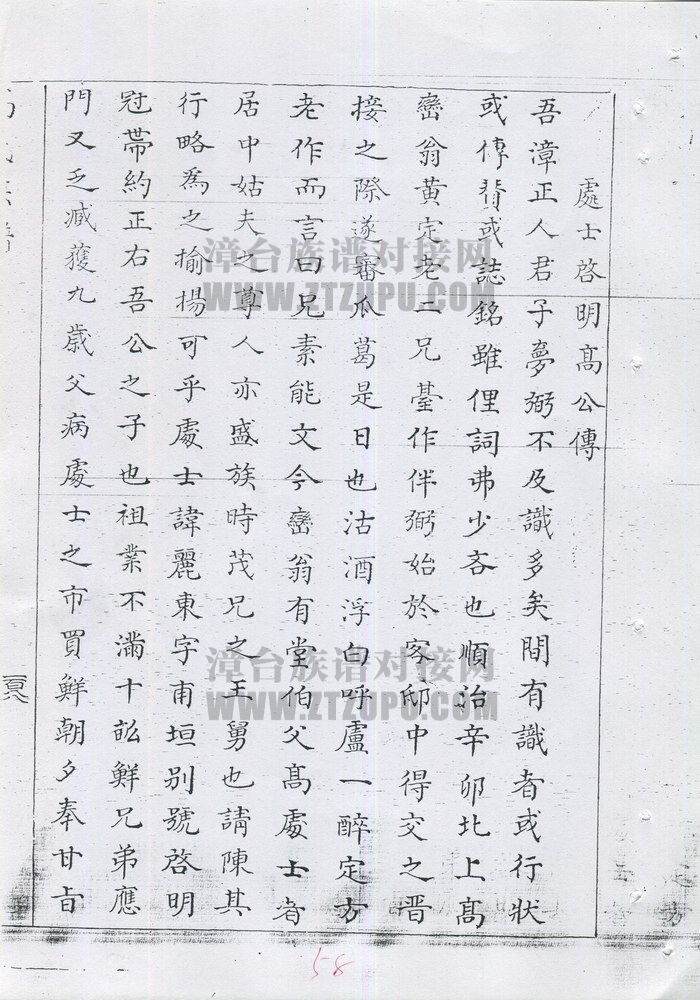 處士啓明髙公傳
吾漳正人君子夢弼不及識多矣間有識者或行狀
或傳賛或誌銘雖俚詞弗少吝也順治辛卯北上髙
巒翁黄定老二兄臺作伴弼始於客邸中得交之晋
接之際遂審瓜葛是日也沽酒浮白呼盧一醉定方
老作而言曰兄素能文今巒翁有堂伯父髙處士者
居中姑夫之尊人亦盛族時茂兄之王舅也請陳其
行略爲之揄揚可乎處士諱麗東字甫垣别號啓明
冠帶約正右吾公之子也祖業不滿十訟鮮兄弟應
門又乏臧獲九歲父病處士之市買鮮朝夕奉甘旨
漳台族谱对接网
WWW.ZTZUPU.COM
漳台族谱对接网
WWW.ZTZUPU.COM
58